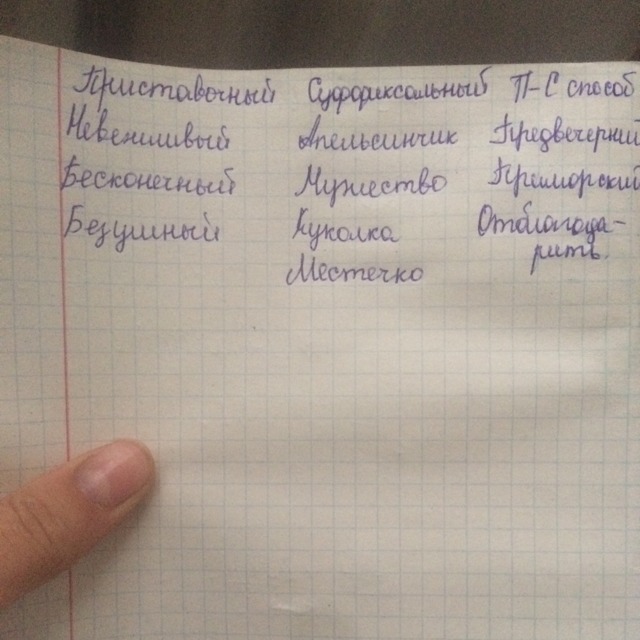 Приставочный
Невежливый
Бесконечный
Безумный
Суффиксальный
Апельсинчик
Мужество
Куколка
Местечко
П-С способ
Предвечерний
Приморский
Отблагода-
рить.